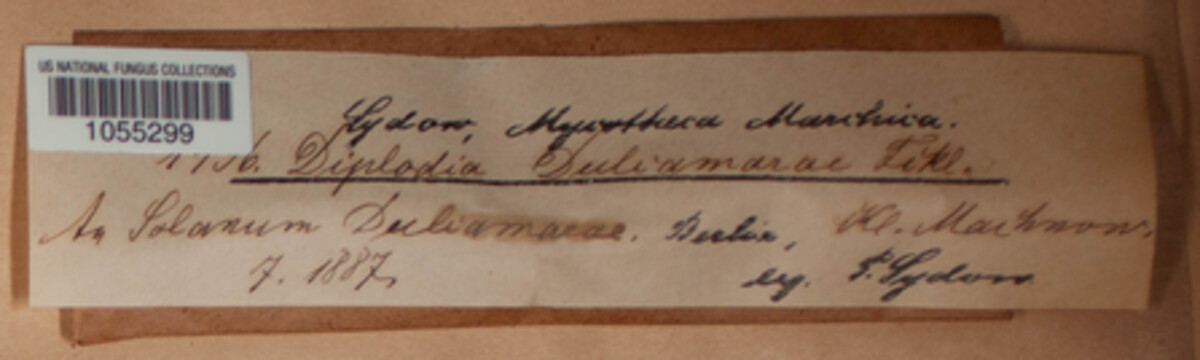 US NATIONAL FUNGUS COLLECTIONS
1055299
Sydow, Mycotheca Marchica.
Diplodia Dulcamarae Fckl.
An Solanum Dulcamarae. Berlin, Kl. Machnow.
7. 1887. leg. P. Sydow